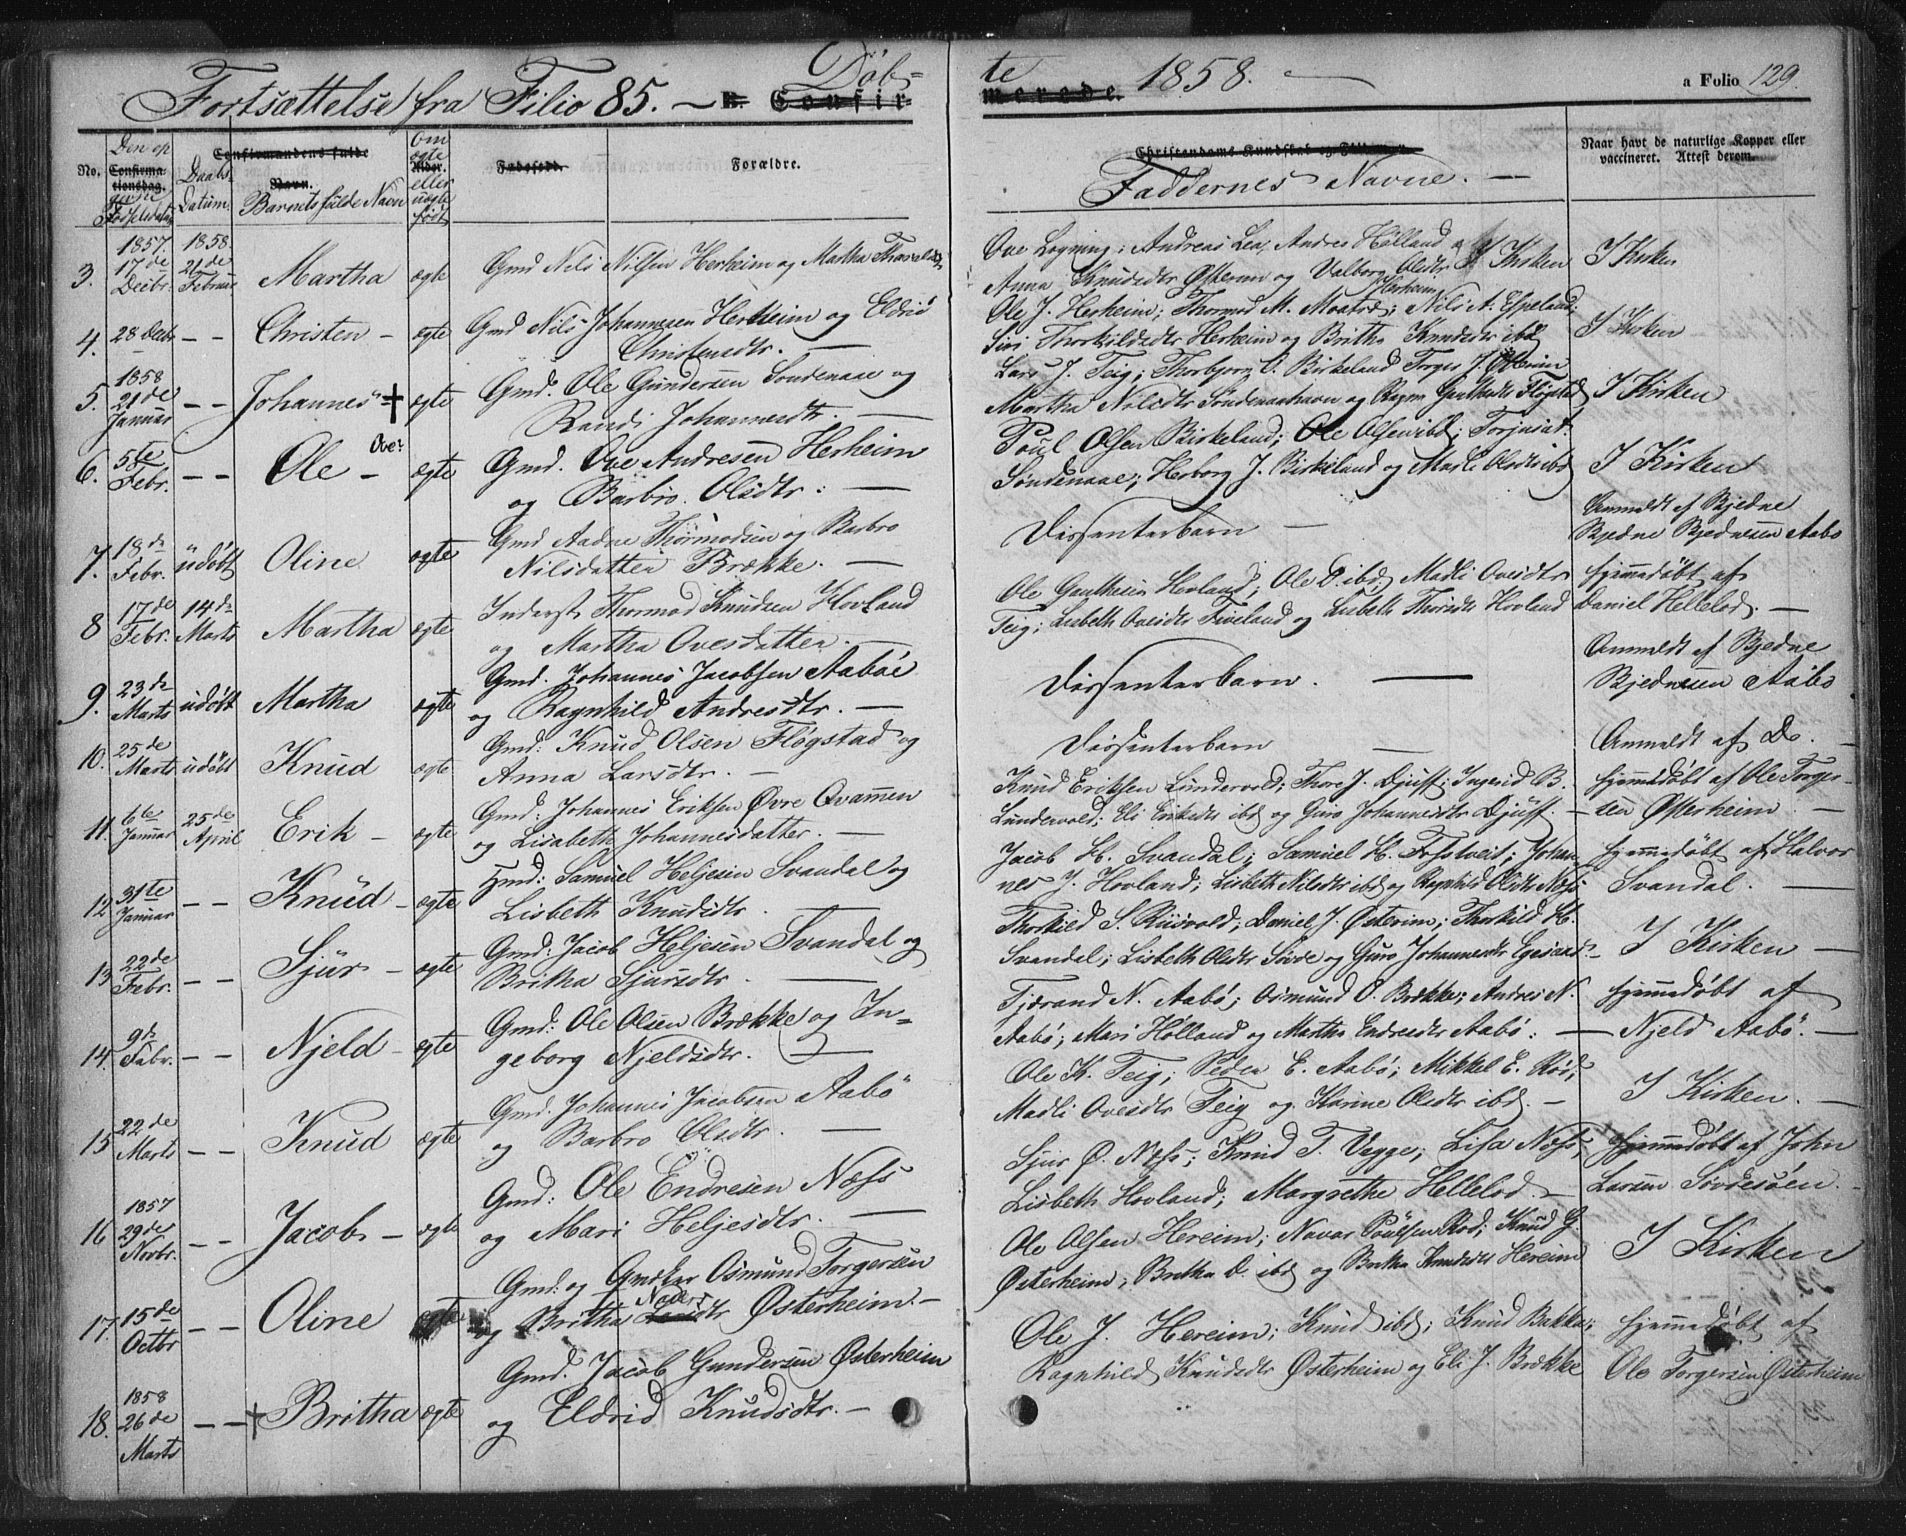 Fortsættelse fra Filio 85. — B. Confir- Døb-
te 1858. —
merede.
a Folio 129.
No.
Den op
Confirma-
tionsdag.
Daabs-
Datum.
Confirmandens fulde
Navn.
Barnets fulde Navn
Om
ægte
Alder.
eller
uægte
født
Fødested.
Forældre.
Christendoms Kundskab og
Faddernes Navne. —
Naar havt de naturlige Kopper eller
vaccineret. Attest derom.
1857. 1858.
3. 17de Decbr. 21de Februar Martha ægte Gmd Nils Nilsen Herheim og Martha
Ove Andreas Lea, Andres Hølland
Anna Knudsdtr og Valborg Olsdtr
I Kirken
4. 28 Decbr — — Christen — ægte Gmd Nils Johannesen Herheim og Eldrid
Christensdtr. —
Ole J. Herheim; Thormod M. Nils A. Espeland;
Siri Thorkildsdtr Herheim og Britha Knudsdtr ibd
I Kirken
1858
5. 21de Januar — — Johannes † ægte Gmd. Ole Gundersen Søndenaae og
Randi Johannesdtr. —
Lars J. Teig; Thorbjørn O. Birkeland Torger J.
Martha Nilsdtr
I Kirken
6. 5te Febr. — — Ole — Ove? ægte Gmd. Ove Andresen Herheim
og Barbro Olsdtr. —
Poul Olsen Birkeland; Ole Olsen ibd;
Søndenaae; Herborg J. Birkeland og Madli Olsdtr ibd
I Kirken
7. 18de Febr. udøbt Oline ægte Gmd Aadne Thormodsen og Barbro
Nilsdatter Brække. —
Dissenterbarn —
Anmeldt af Bjedne
Bjedne Bjednesen Aabø
8 17de Febr. 14de Marts Martha ægte Inderst Thormod Knudsen Hovland
og Martha Ovesdatter. —
Ole Hovland; Ole ibd; Madli Ovesdtr
Teig; Lisbeth Ovesdtr og Lisbeth Thoresdtr Hovland
hjemmedøbt af
Daniel Hellelod. —
9. 23de Marts udøbt Martha ægte Gmd. Johannes Jacobsen Aabøe
og Ragnhild Andresdtr. —
Dissenterbarn. —
Anmeldt af Bjedne
Bjednesen Aabø
10. 25de Marts udøbt Knud ægte Gmd: Knud Olsen Fløgstad og
Anna Larsdtr. —
Dissenterbarn —
Anmeldt af Do. —
11. 6te Januar 25de April Erik — ægte Gmd: Johannes Eriksen Øvre Qvamen
og Lisabeth Johannesdatter. —
Knud Eriksen Lundevold; Thore J. Djuff; Ingerid B.
Lundevold; Eli Eriksdtr ibd og Guro Johannesdtr Djuff. —
hjemmedøbt af Ole Torger-
sen Østerheim —
12 31te Januar — — Knud — ægte Gmd: Samuel Heljesen Svandal og
Lisbeth Knudsdtr —
Jacob H. Svandal; Samuel H. Johan-
nes J. Hovland; Lisbeth Nilsdtr ibd og Ragnhild Olsdtr Næss
hjemmedøbt af Halvor
Svandal. —
13 22de Febr. — — Sjur — ægte Gmd: Jacob Heljesen Svandal og
Britha Sjursdtr. —
Thorkild S. Risvold; Daniel J. Østreim; Thorkild H.
Svandal; Lisbeth Olsdtr og Guro Johannesdtr
I Kirken —
14. 9de Febr. — — Njeld — ægte Gmd: Ole Olsen Brække og In-
geborg Njeldsdtr. —
Tjærand N. Aabø; Osmund O. Brække; Andres N.
Aabø; Mari Hølland og Martha Endresdtr Aabø. —
hjemmedøbt af
Njeld Aabø. —
15 22de Marts — — Knud ægte Gmd. Johannes Jacobsen Aabø
og Barbro Olsdtr. —
Ole K. Teig; Peder E. Aabø; Mikkel E. Rød;
Madli Ovesdtr Teig og Karine Olsdtr ibd. —
I Kirken. —
1857
16 29de Novbr. — — Jacob — ægte Gmd: Ole Endresen Næss
og Mari Heljesdtr. —
Sjur Ø. Næss; Knud T. Vegge; Lisa Næss;
Lisbeth Hovland; Margrethe Hellelod. —
hjemmedøbt af John
Larsen
17. 15de Octbr — — Oline ægte Gmd. og Osmund Torgersen
og Britha Larsdtr Østerheim. —
Ole Olsen Hereim; Navar Poulsen Rød; Knud G.
Østerheim; Britha ibd og Britha Knudsdtr Hereim
I Kirken
1858
18. 26de Marts — — † Britha ægte Gmd. Jacob Gundersen Østerheim
og Eldrid Knudsdtr. —
Ole J. Hereim; Knud ibd; Knud Bakka;
Ragnhild Knudsdtr Østerheim og Eli J. Brække
hjemmedøbt af
Ole Torgersen Østerheim